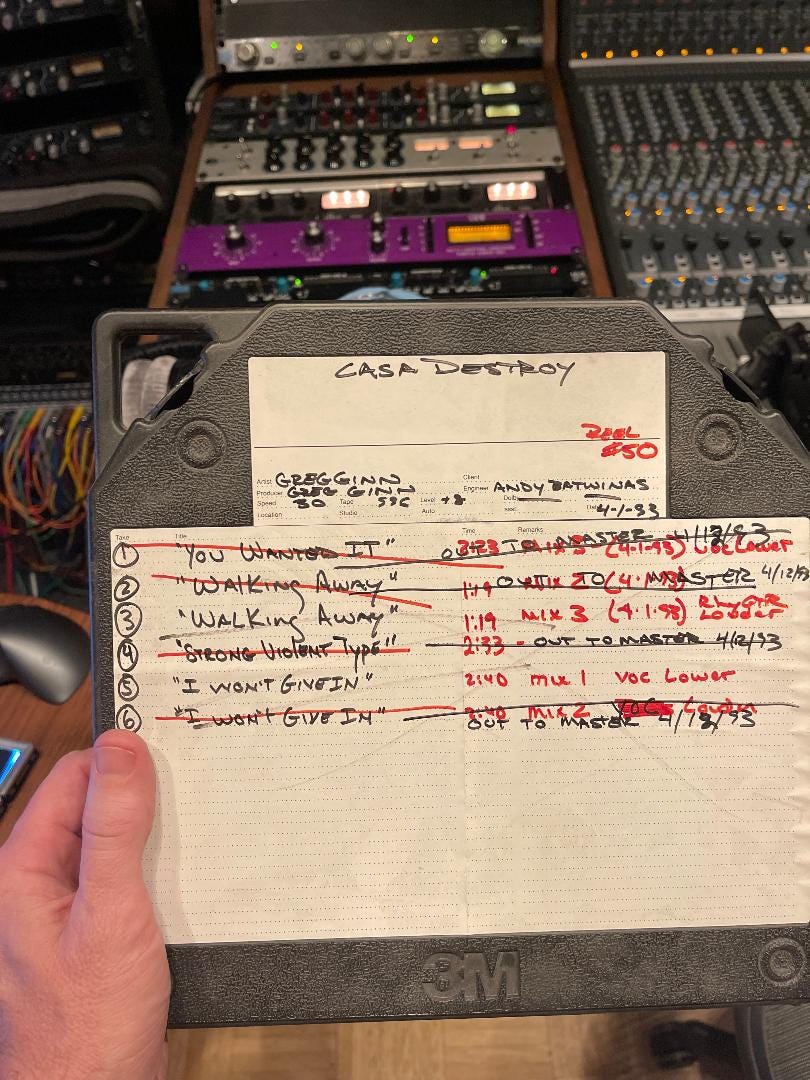 CASA DESTROY
REEL
#50
Artist GREG GINN Client
Producer GREG GINN Engineer ANDY BATWINAS
Speed 30 Tape 596 Level +8 Dolby
Location Studio Auto Date 4-1-93
Take Title Time Remarks
1 "YOU WANTED IT" 2:23 MIX 3 (4-1-93) VOC Lower
OUT TO MASTER 4/12/93
2 "WALKING AWAY" 1:19 MIX 2 (4-1-93)
OUT TO MASTER 4/12/93
3 "WALKING AWAY" 1:19 MIX 3 (4-1-93) RhyGTR Louder
4 "STRONG VIOLENT TYPE" 2:33 - OUT TO MASTER 4/12/93
5 "I WON'T GIVE IN" 2:40 MIX 1 VOC Lower
6 "I WON'T GIVE IN" 2:40 MIX 2 VOC Louder
OUT TO MASTER 4/12/93
3M